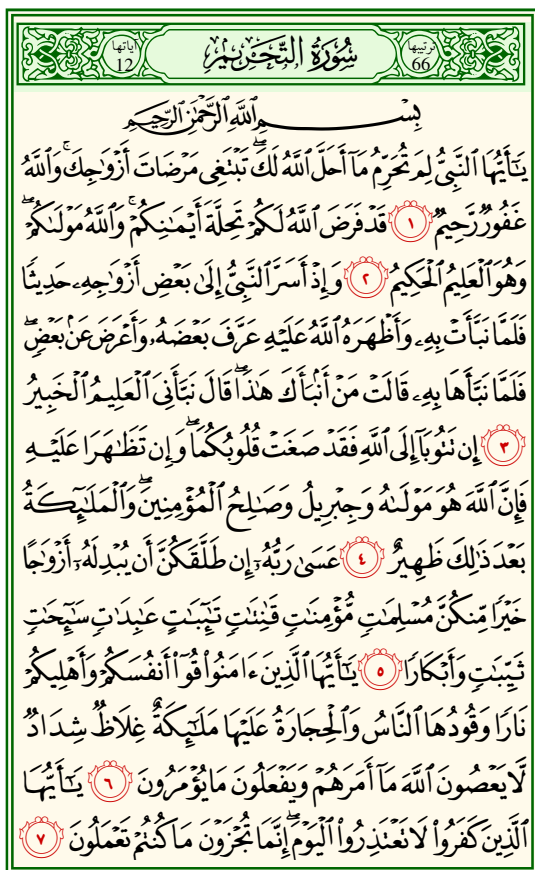 ترتيبها 66 سُورَةُ التَّحۡرِيمِ اياتها 12
بِسۡمِ ٱللَّهِ ٱلرَّحۡمَٰنِ ٱلرَّحِيمِ
يَٰٓأَيُّهَا ٱلنَّبِيُّ لِمَ تُحَرِّمُ مَآ أَحَلَّ ٱللَّهُ لَكَۖ تَبۡتَغِي مَرۡضَاتَ أَزۡوَٰجِكَۚ وَٱللَّهُ
غَفُورٞ رَّحِيمٞ ١ قَدۡ فَرَضَ ٱللَّهُ لَكُمۡ تَحِلَّةَ أَيۡمَٰنِكُمۡۚ وَٱللَّهُ مَوۡلَىٰكُمۡۖ
وَهُوَ ٱلۡعَلِيمُ ٱلۡحَكِيمُ ٢ وَإِذۡ أَسَرَّ ٱلنَّبِيُّ إِلَىٰ بَعۡضِ أَزۡوَٰجِهِۦ حَدِيثٗا
فَلَمَّا نَبَّأَتۡ بِهِۦ وَأَظۡهَرَهُ ٱللَّهُ عَلَيۡهِ عَرَّفَ بَعۡضَهُۥ وَأَعۡرَضَ عَنۢ بَعۡضٖۖ
فَلَمَّا نَبَّأَهَا بِهِۦ قَالَتۡ مَنۡ أَنۢبَأَكَ هَٰذَاۖ قَالَ نَبَّأَنِيَ ٱلۡعَلِيمُ ٱلۡخَبِيرُ
٣ إِن تَتُوبَآ إِلَى ٱللَّهِ فَقَدۡ صَغَتۡ قُلُوبُكُمَاۖ وَإِن تَظَٰهَرَا عَلَيۡهِ
فَإِنَّ ٱللَّهَ هُوَ مَوۡلَىٰهُ وَجِبۡرِيلُ وَصَٰلِحُ ٱلۡمُؤۡمِنِينَۖ وَٱلۡمَلَٰٓئِكَةُ
بَعۡدَ ذَٰلِكَ ظَهِيرٌ ٤ عَسَىٰ رَبُّهُۥٓ إِن طَلَّقَكُنَّ أَن يُبۡدِلَهُۥٓ أَزۡوَٰجًا
خَيۡرٗا مِّنكُنَّ مُسۡلِمَٰتٖ مُّؤۡمِنَٰتٖ قَٰنِتَٰتٖ تَٰٓئِبَٰتٍ عَٰبِدَٰتٖ سَٰٓئِحَٰتٖ
ثَيِّبَٰتٖ وَأَبۡكَارٗا ٥ يَٰٓأَيُّهَا ٱلَّذِينَ ءَامَنُواْ قُوٓاْ أَنفُسَكُمۡ وَأَهۡلِيكُمۡ
نَارٗا وَقُودُهَا ٱلنَّاسُ وَٱلۡحِجَارَةُ عَلَيۡهَا مَلَٰٓئِكَةٌ غِلَاظٞ شِدَادٞ
لَّا يَعۡصُونَ ٱللَّهَ مَآ أَمَرَهُمۡ وَيَفۡعَلُونَ مَا يُؤۡمَرُونَ ٦ يَٰٓأَيُّهَا
ٱلَّذِينَ كَفَرُواْ لَا تَعۡتَذِرُواْ ٱلۡيَوۡمَۖ إِنَّمَا تُجۡزَوۡنَ مَا كُنتُمۡ تَعۡمَلُونَ ٧